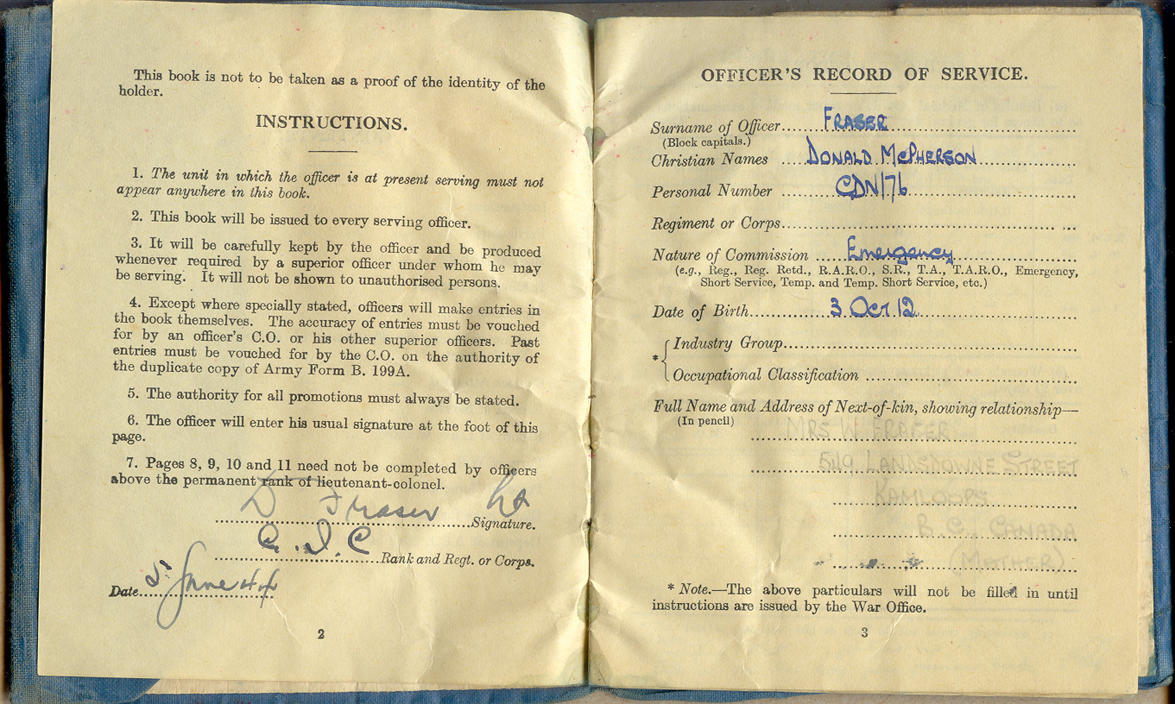 This book is not to be taken as a proof of the identity of the
holder.
INSTRUCTIONS.
1. The unit in which the officer is at present serving must not
appear anywhere in this book.
2. This book will be issued to every serving officer.
3. It will be carefully kept by the officer and be produced
whenever required by a superior officer under whom he may
be serving. It will not be shown to unauthorised persons.
4. Except where specially stated, officers will make entries in
the book themselves. The accuracy of entries must be vouched
for by an officer's C.O. or his other superior officers. Past
entries must be vouched for by the C.O. on the authority of
the duplicate copy of Army Form B. 199A.
5. The authority for all promotions must always be stated.
6. The officer will enter his usual signature at the foot of this
page.
7. Pages 8, 9, 10 and 11 need not be completed by officers
above the permanent rank of lieutenant-colonel.
D Fraser Lt Signature.
C.I.C Rank and Regt. or Corps.
Date June 44
2
OFFICER'S RECORD OF SERVICE.
Surname of Officer FRASER
(Block capitals.)
Christian Names DONALD McPHERSON
Personal Number CDN/76
Regiment or Corps
Nature of Commission Emergency
(e.g., Reg., Reg. Retd., R.A.R.O., S.R., T.A., T.A.R.O., Emergency,
Short Service, Temp. and Temp. Short Service, etc.)
Date of Birth 3 Oct 12
* Industry Group
Occupational Classification
Full Name and Address of Next-of-kin, showing relationship—
(In pencil)
MRS W. FRASER
549 LANDSDOWNE STREET
KAMLOOPS
B.C., CANADA
(MOTHER)
* Note.—The above particulars will not be filled in until
instructions are issued by the War Office.
3